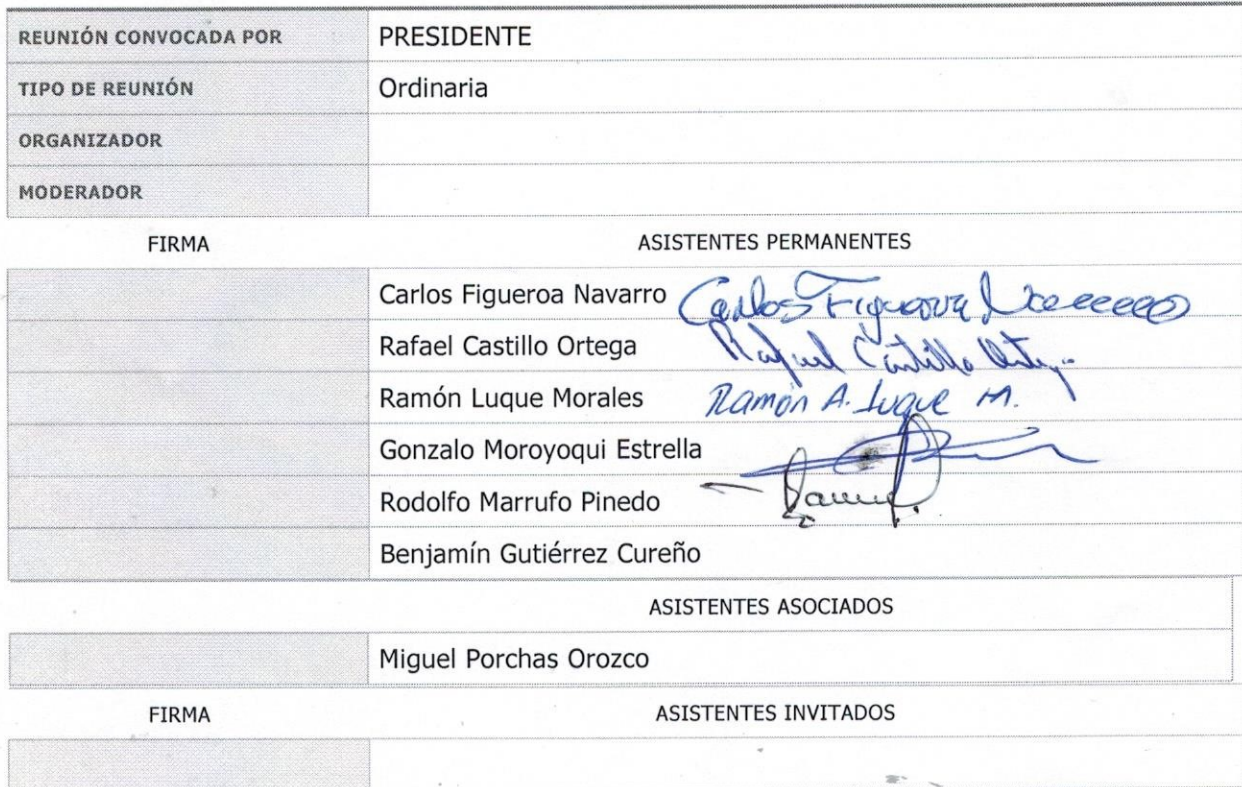 REUNIÓN CONVOCADA POR PRESIDENTE
TIPO DE REUNIÓN Ordinaria
ORGANIZADOR
MODERADOR
FIRMA ASISTENTES PERMANENTES
Carlos Figueroa Navarro Carlos Figueroa Navarro
Rafael Castillo Ortega Rafael Castillo Ortega
Ramón Luque Morales Ramón A. Luque M.
Gonzalo Moroyoqui Estrella
Rodolfo Marrufo Pinedo
Benjamín Gutiérrez Cureño
ASISTENTES ASOCIADOS
Miguel Porchas Orozco
FIRMA ASISTENTES INVITADOS